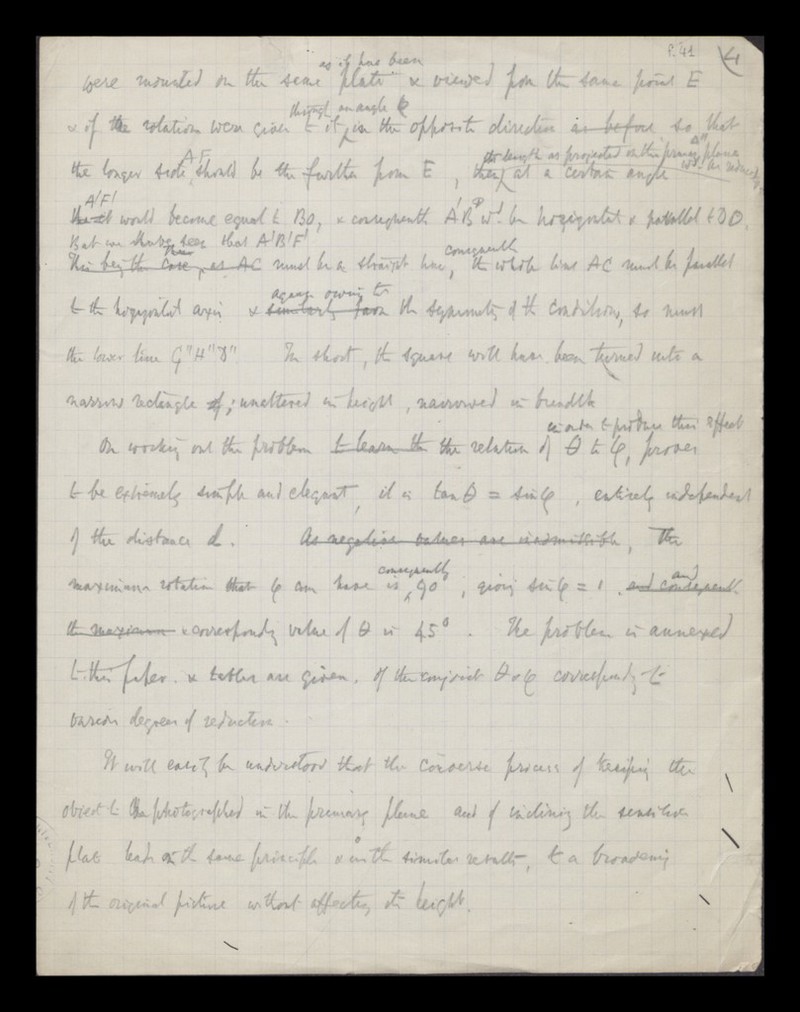 P. 41
4
as it has been
were mounted on the same plate & viewed from the same point E
through an angle φ
& if the rotation were given to it, in the opposite direction as before, so that
the length as projected on the primary plane
the longer side, A F, should be the further from E, then at a certain angle wd. be reduced
A'F' would become equal to BO, & consequently A'B' wd. be horizontal & parallel to DO.
But we have seen that A'B'F'
This being the case, as AC must be a straight line, consequently the whole line AC must be parallel
again owing to
to the horizontal axis & similarly from the symmetry of the conditions, so must
the lower line G"H"D" In short, the square will have been turned into a
narrow rectangle of; unaltered in height, narrowed in breadth
in order to produce this effect
On working out the problem to learn the the relation of θ to φ, proves
to be extremely simple and elegant, it is tan θ = sin φ, entirely independent
of the distance d. As negative values are inadmissible, The
maximum rotation that φ can have is, consequently 90°, giving sin φ = 1, and consequently
the maximum & corresponding value of θ is 45°. The problem is annexed
to this paper. & tables are given. of the conjoint θ & φ corresponding to
various degrees of reduction.
It will easily be understood that the converse process of keeping the
object to be photographed in the primary plane and of inclining the sensitive
plate leads on the same principle & with similar results, to a broadening
of the original picture without affecting its height.